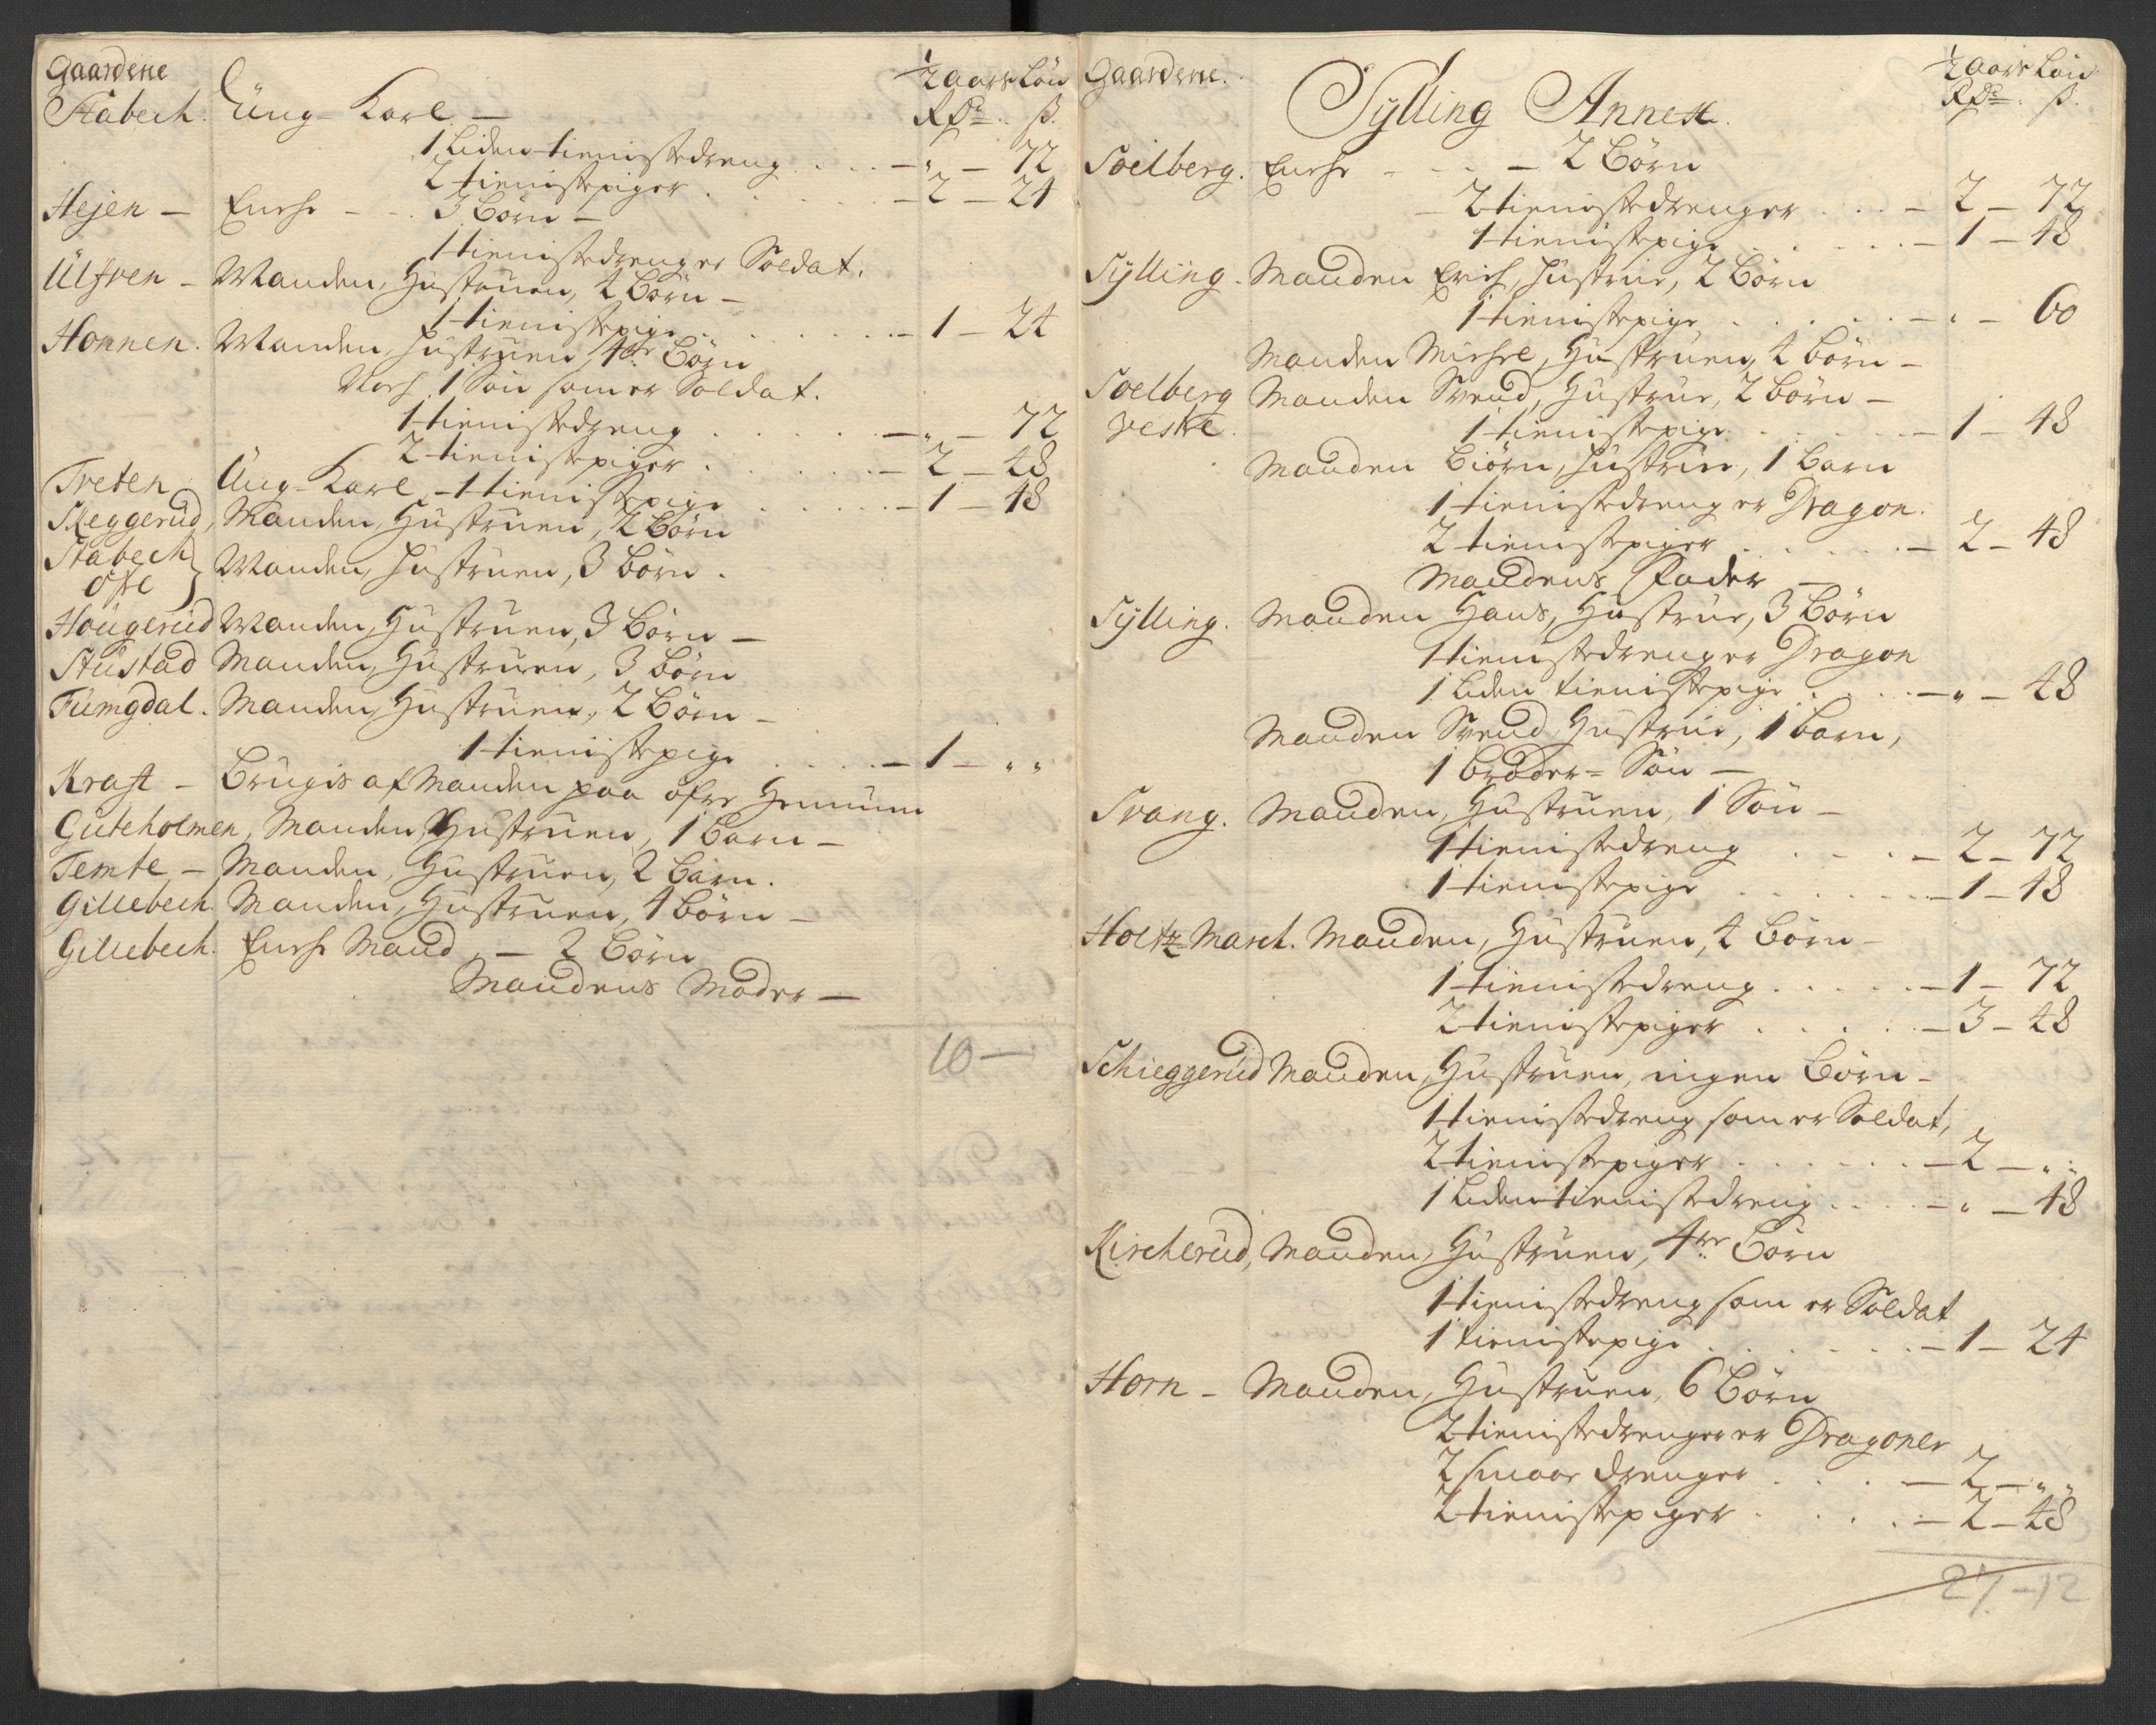 Gaardene
½ aars Løn
Rdr. ß.
Stabech. Ung Karl. —
1 liden tienistedreng . . . — " — 72
2 tienistepiger . . . — 2 — 24
Hejen — Enche - - - 3 Børn —
1 tienistedreng er Soldat.
Ulfven — Manden, Hustruen, 2 Børn —
1 tienistepige . . . — 1 — 24
Honnen. Manden, Hustruen, 4re Børn
Noch 1 Søn som er Soldat.
1 tienistedreng . . . — " — 72
2 tienistepiger . . . — 2 — 48
Treten Ung Karl, - 1 tienistepige . . . — 1 — 48
Skeggerud, Manden, Hustruen, 2 Børn
Stabech øfre } Manden, Hustruen, 3 børn.
Hougerud Manden, Hustruen, 3 Børn —
Stustad Manden, Hustruen, 3 børn
Tumgdal. Manden, Hustruen, 2 Børn —
1 tienistepige . . . — 1 — " "
Kraft — Brugis af Manden paa øfre Hennum
Guteholmen, Manden, Hustruen, 1 barn —
Temte — Manden, Hustruen, 2 barn.
Gillebech. Manden, Hustruen, 4 børn —
Gillebech. Enche Mand, — 2 Børn
Mandens Moder —
10 —
Gaardene.
½ aars Løn
Rdr. ß.
Sylling Annex.
Soelberg. Enche - - - 2 Børn
2 tienistedrenger . . . — 2 — 72
1 tienistepige . . . — 1 — 48
Sylling. Manden Erich, Hustrue, 2 Børn
1 tienistepige . . . — " — 60
Manden Michel, Hustruen, 2 børn —
Soelberg Manden Svend, Hustrue, 2 børn —
vestre. 1 tienistepige . . . — 1 — 48
Manden Biørn, Hustrue, 1 barn
1 tienistedreng er Dragon.
2 tienistepiger . . . — 2 — 48
Mandens Fader —
Sylling. Manden Hans, Hustrue, 3 Børn
1 tienistedreng er Dragon
1 liden tienistepige . . . — " — 48
Manden Svend, Hustrue, 1 barn,
1 broder= Søn —
Svang. Manden, Hustruen, 1 Søn —
1 tienistedreng . . . — 2 — 72
1 tienistepige . . . — 1 — 48
Holtz-March. Manden, Hustruen, 2 Børn —
1 tienistedreng . . . — 1 — 72
2 tienistepiger . . . — 3 — 48
Schieggerud Manden, Hustruen, ingen Børn —
1 tienistedreng som er Soldat,
2 tienistepiger . . . — 2 — " "
1 liden tienistedreng . . . — " — 48
Kircherud, Manden, Hustruen, 4re Børn
1 tienistedreng som er Soldat
1 tienistepige . . . — 1 — 24
Horn — Manden, Hustruen, 6 Børn
2 tienistedrenger er Dragoner
2 smaae drenger . . . — 2 — " "
2 tienistepiger . . . — 2 — 48
27 — 12